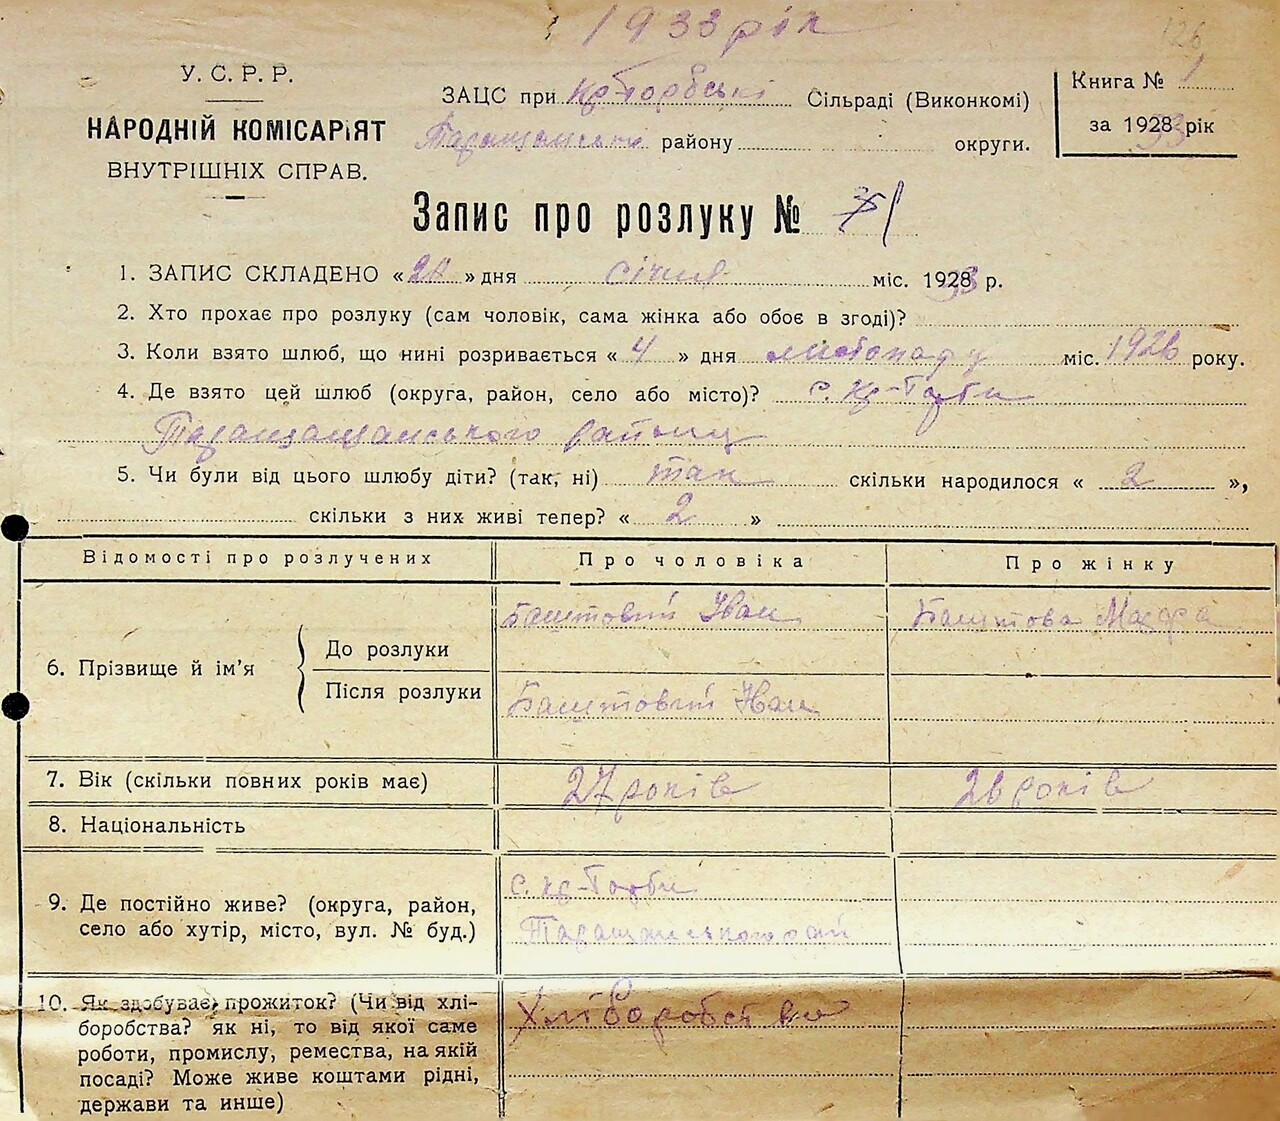 1933 рік
126
У. С. Р. Р.
НАРОДНІЙ КОМІСАРІЯТ
ВНУТРІШНІХ СПРАВ.
ЗАЦС при Кр-Торбські Сільраді (Виконкомі)
Таращанські району округи.
Книга № 1
за 192833 рік
Запис про розлуку № 1
1. ЗАПИС СКЛАДЕНО « » дня січня міс. 192833 р.
2. Хто прохає про розлуку (сам чоловік, сама жінка або обоє в згоді)?
3. Коли взято шлюб, що нині розривається « 4 » дня листопаду міс. 1926 року.
4. Де взято цей шлюб (округа, район, село або місто)? с. Кр-Торби
Таращащанського району
5. Чи були від цього шлюбу діти? (так, ні) так скільки народилося « 2 »,
скільки з них живі тепер? « 2 »
Відомості про розлучених Про чоловіка Про жінку
6. Прізвище й ім'я
До розлуки Баштовий Іван Баштова
Після розлуки Баштовий Іван
7. Вік (скільки повних років має) 27 років 26 років
8. Національність
9. Де постійно живе? (округа, район,
село або хутір, місто, вул. № буд.)
с. Кр-Торби
Таращанського рай
10. Як здобуває прожиток? (Чи від хлі-
боробства? як ні, то від якої саме
роботи, промислу, ремества, на якій
посаді? Може живе коштами рідні,
держави та инше)
Хліборобство